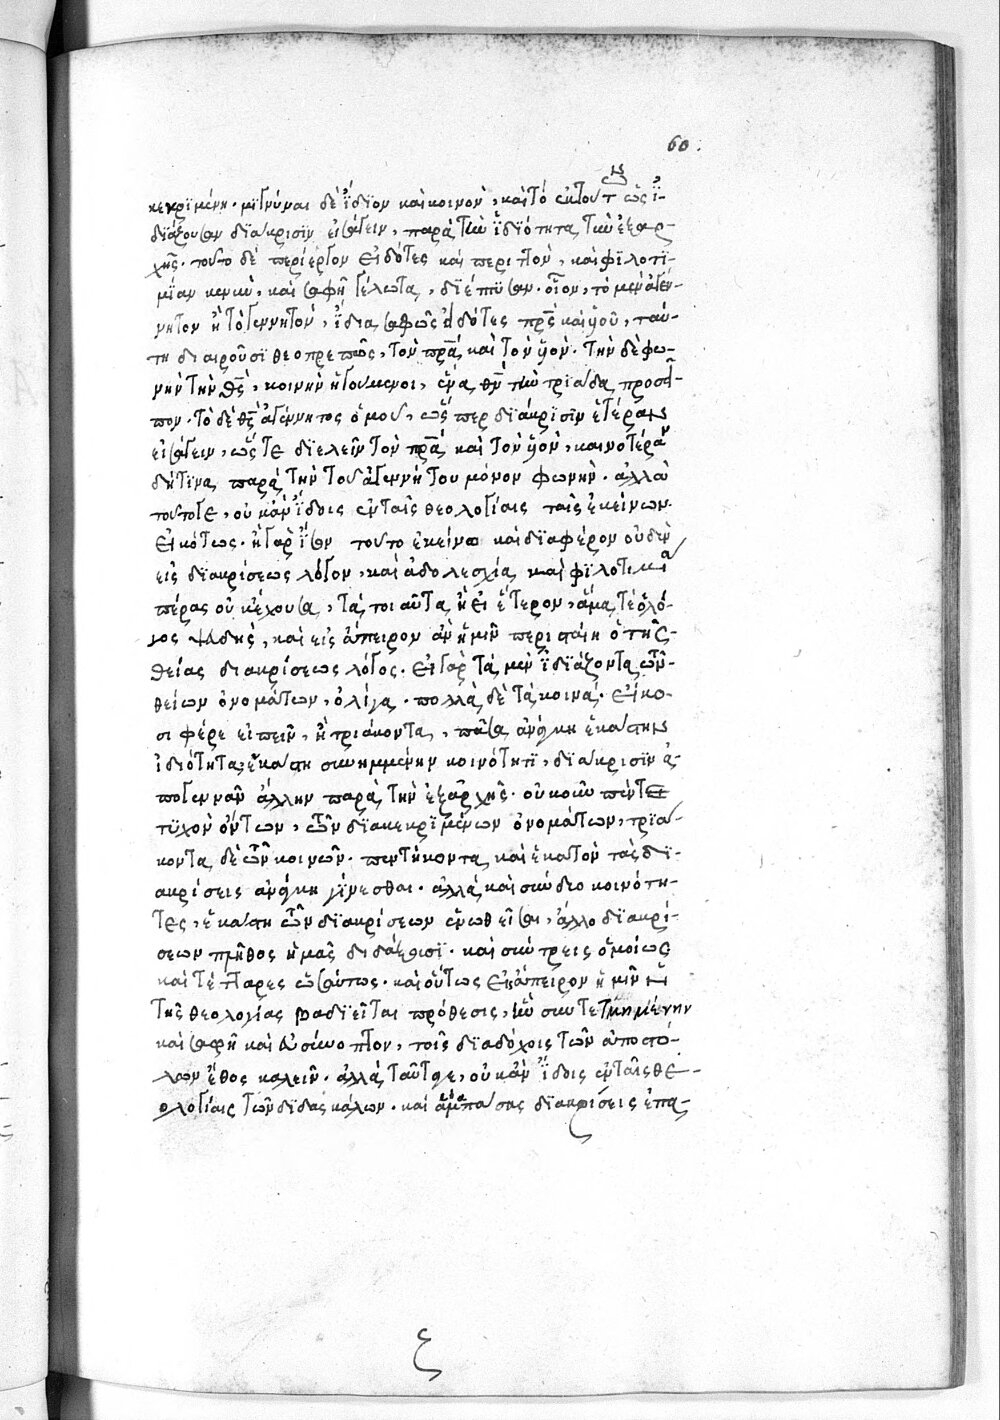 60.
κεκριμένη. μιγνύναι δὲ ἴδιον καὶ κοινὸν, καὶ τὸ ἐκ τούτ ὡς ἰ-
διάζουσαν διάκρισιν εἰσάγειν, παρὰ τὴν ἰδιότητα τὴν ἐξαρ-
χῆς. τοῦτο δὲ περίεργον εἰδότες καὶ περιττὸν, καὶ φιλοτι-
μίαν κενὴν, καὶ σαφῆ γέλωτα, διέπτυσαν. οἷον, τὸ μὲν ἀγέν-
νητον ἢ τὸ γεννητὸν, ἴδια σαφῶς εἰδότες πρς καὶ υἱοῦ, ταύ-
τῃ διαιροῦσι θεοπρεπῶς, τὸν πρα καὶ τὸν υἱόν. τὴν δὲ φω-
νὴν τὴν θς, κοινὴν ἡγούμενοι, ἕνα θν τὴν τριάδα προσεῖ-
πον. τὸ δὲ θς ἀγέννητος ὁμοῦ, ὥσπερ διάκρισιν ἑτέραν
εἰσάγειν, ὥστε διελεῖν τὸν πρα καὶ τὸν υἱὸν, καινοτέραν
δή τινα παρὰ τὴν τοῦ ἀγεννήτου μόνον φωνήν. ἀλλὰ
τοῦτό γε, οὐκ ἂν ἴδοις ἐν ταῖς θεολογίαις ταῖς ἐκείνων.
εἰκότως. ᾔσαν τοῦτο ἐκεῖνο καὶ διαφέρον οὐδὲν
εἰς διακρίσεως λόγον, καὶ ἀδολεσχία καὶ φιλοτιμία
πέρας οὐκ ἔχουσα, τά τοι αὐτὰ ἢ εἰ ἕτερον, ἅμα τε ὁ λό-
γος ψευδὴς, καὶ εἰς ἄπειρον ἂν ἡμῖν περισταίη ὁ τῆς
θείας διακρίσεως λόγος. εἰ γὰρ τὰ μὲν ἰδιάζοντα τῶν
θείων ὀνομάτων, ὀλίγα. πολλὰ δὲ τὰ κοινά. εἴκο-
σι φέρε εἰπεῖν, ἢ τριάκοντα, πᾶσα ἀνάγκη ἑκάστην
ἰδιότητα ἑκάστῃ συνημμένην κοινότητι, διάκρισιν ἀ-
πογεννᾶν ἄλλην παρὰ τὴν ἐξαρχῆς. οὐκοῦν πέντε
τυχὸν ὄντων, τῶν διακεκριμένων ὀνομάτων, τριά-
κοντα δὲ τῶν κοινῶν. πεντήκοντα καὶ ἑκατὸν τὰς δι-
ακρίσεις ἀνάγκη γίνεσθαι. ἀλλὰ καὶ σὺν δύο κοινότη-
τες, ἑκάστῃ τῶν διακρίσεων ἑνωθεῖσαι, ἄλλο διακρί-
σεων πλῆθος ἡμᾶς διδάξουσι. καὶ σὺν τρεῖς ὁμοίως
καὶ τέτταρες ὡσαύτως. καὶ οὕτως εἰς ἄπειρον ἡμῖν
τῆς θεολογίας βαδιεῖται πρόθεσις, ἣν συντετμημένην
καὶ σαφῆ καὶ εὐσύνοπτον, τοῖς διαδόχοις τῶν ἀποστό-
λων ἔθος καλεῖν. ἀλλὰ ταῦτά γε, οὐκ ἂν ἴδοις ἐν ταῖς θε-
ολογίαις τῶν διδασκάλων. καὶ ἁπάσας διακρίσεις ἐπα-
ζ